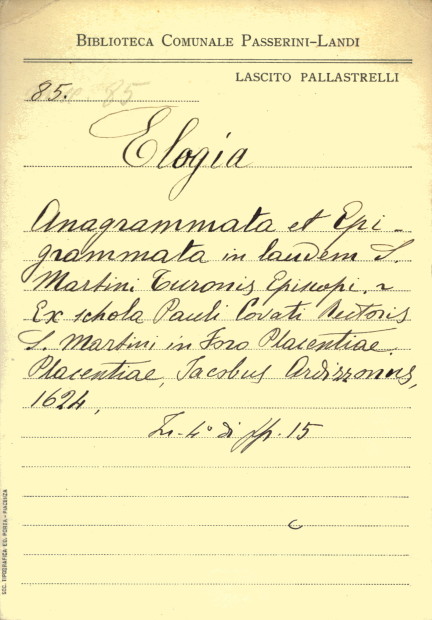 BIBLIOTECA COMUNALE PASSERINI-LANDI
LASCITO PALLASTRELLI
85. 85
Elogia
Anagrammata et Epi-
grammata in laudem S.
Martini Turonis Episcopi. ~
Ex schola Pauli Covati Rectoris
S. Martini in Foro Placentiae.
Placentiae, Jacobus Ardizzonus,
1624,
In-4° di pp. 15
SOC. TIPOGRAFICA ED. PORTA-PIACENZA